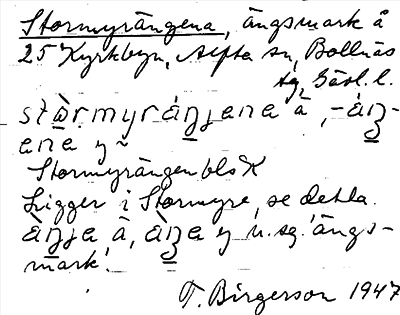 Stormyrängena, ängsmark å
25 Kyrkbyn, Alfta sn, Bollnäs
tg, Gävl. l.
stɷ̀rmyráŋɟena â, -áŋ-
ena y ~
Stormyrängen bls K
Ligger i Stormyre, se detta.
àŋɟa, â, àŋa y u. sg. 'ängs-
mark'.
T. Birgerson 1947